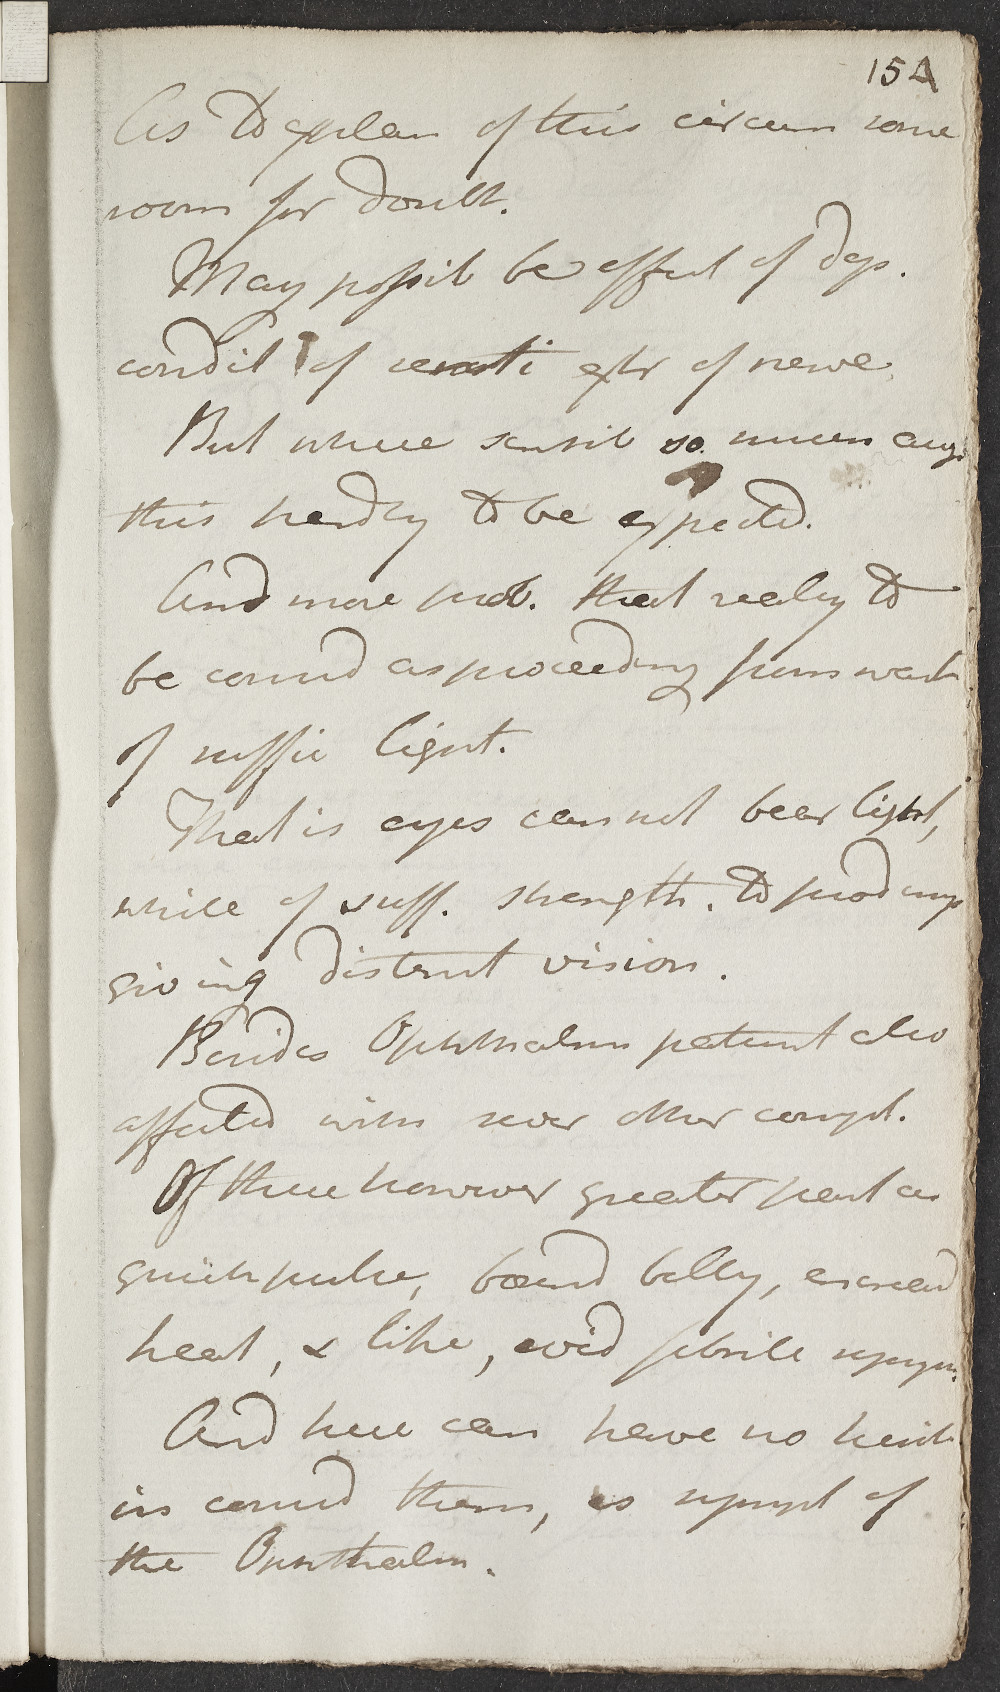 154
As to explan of this circum some
room for doubt.
May possib be effect of dep.
condit of extr of nerve.
But where sensib so much aug.
this hardly to be expected.
And more prob. that really to
be consid as proceeding from want
of suffic light.
That is eyes cannot bear light,
while of suff. strength. to
giving distinct vision.
Besides Ophthalm patient also
affected with sever other compl.
Of these however greater part as
quick pulse, bound belly, encreased
heat, & like, evid febrile sympm.
And here can have no hesit
in consid them, as sympt of
the Ophthalm.